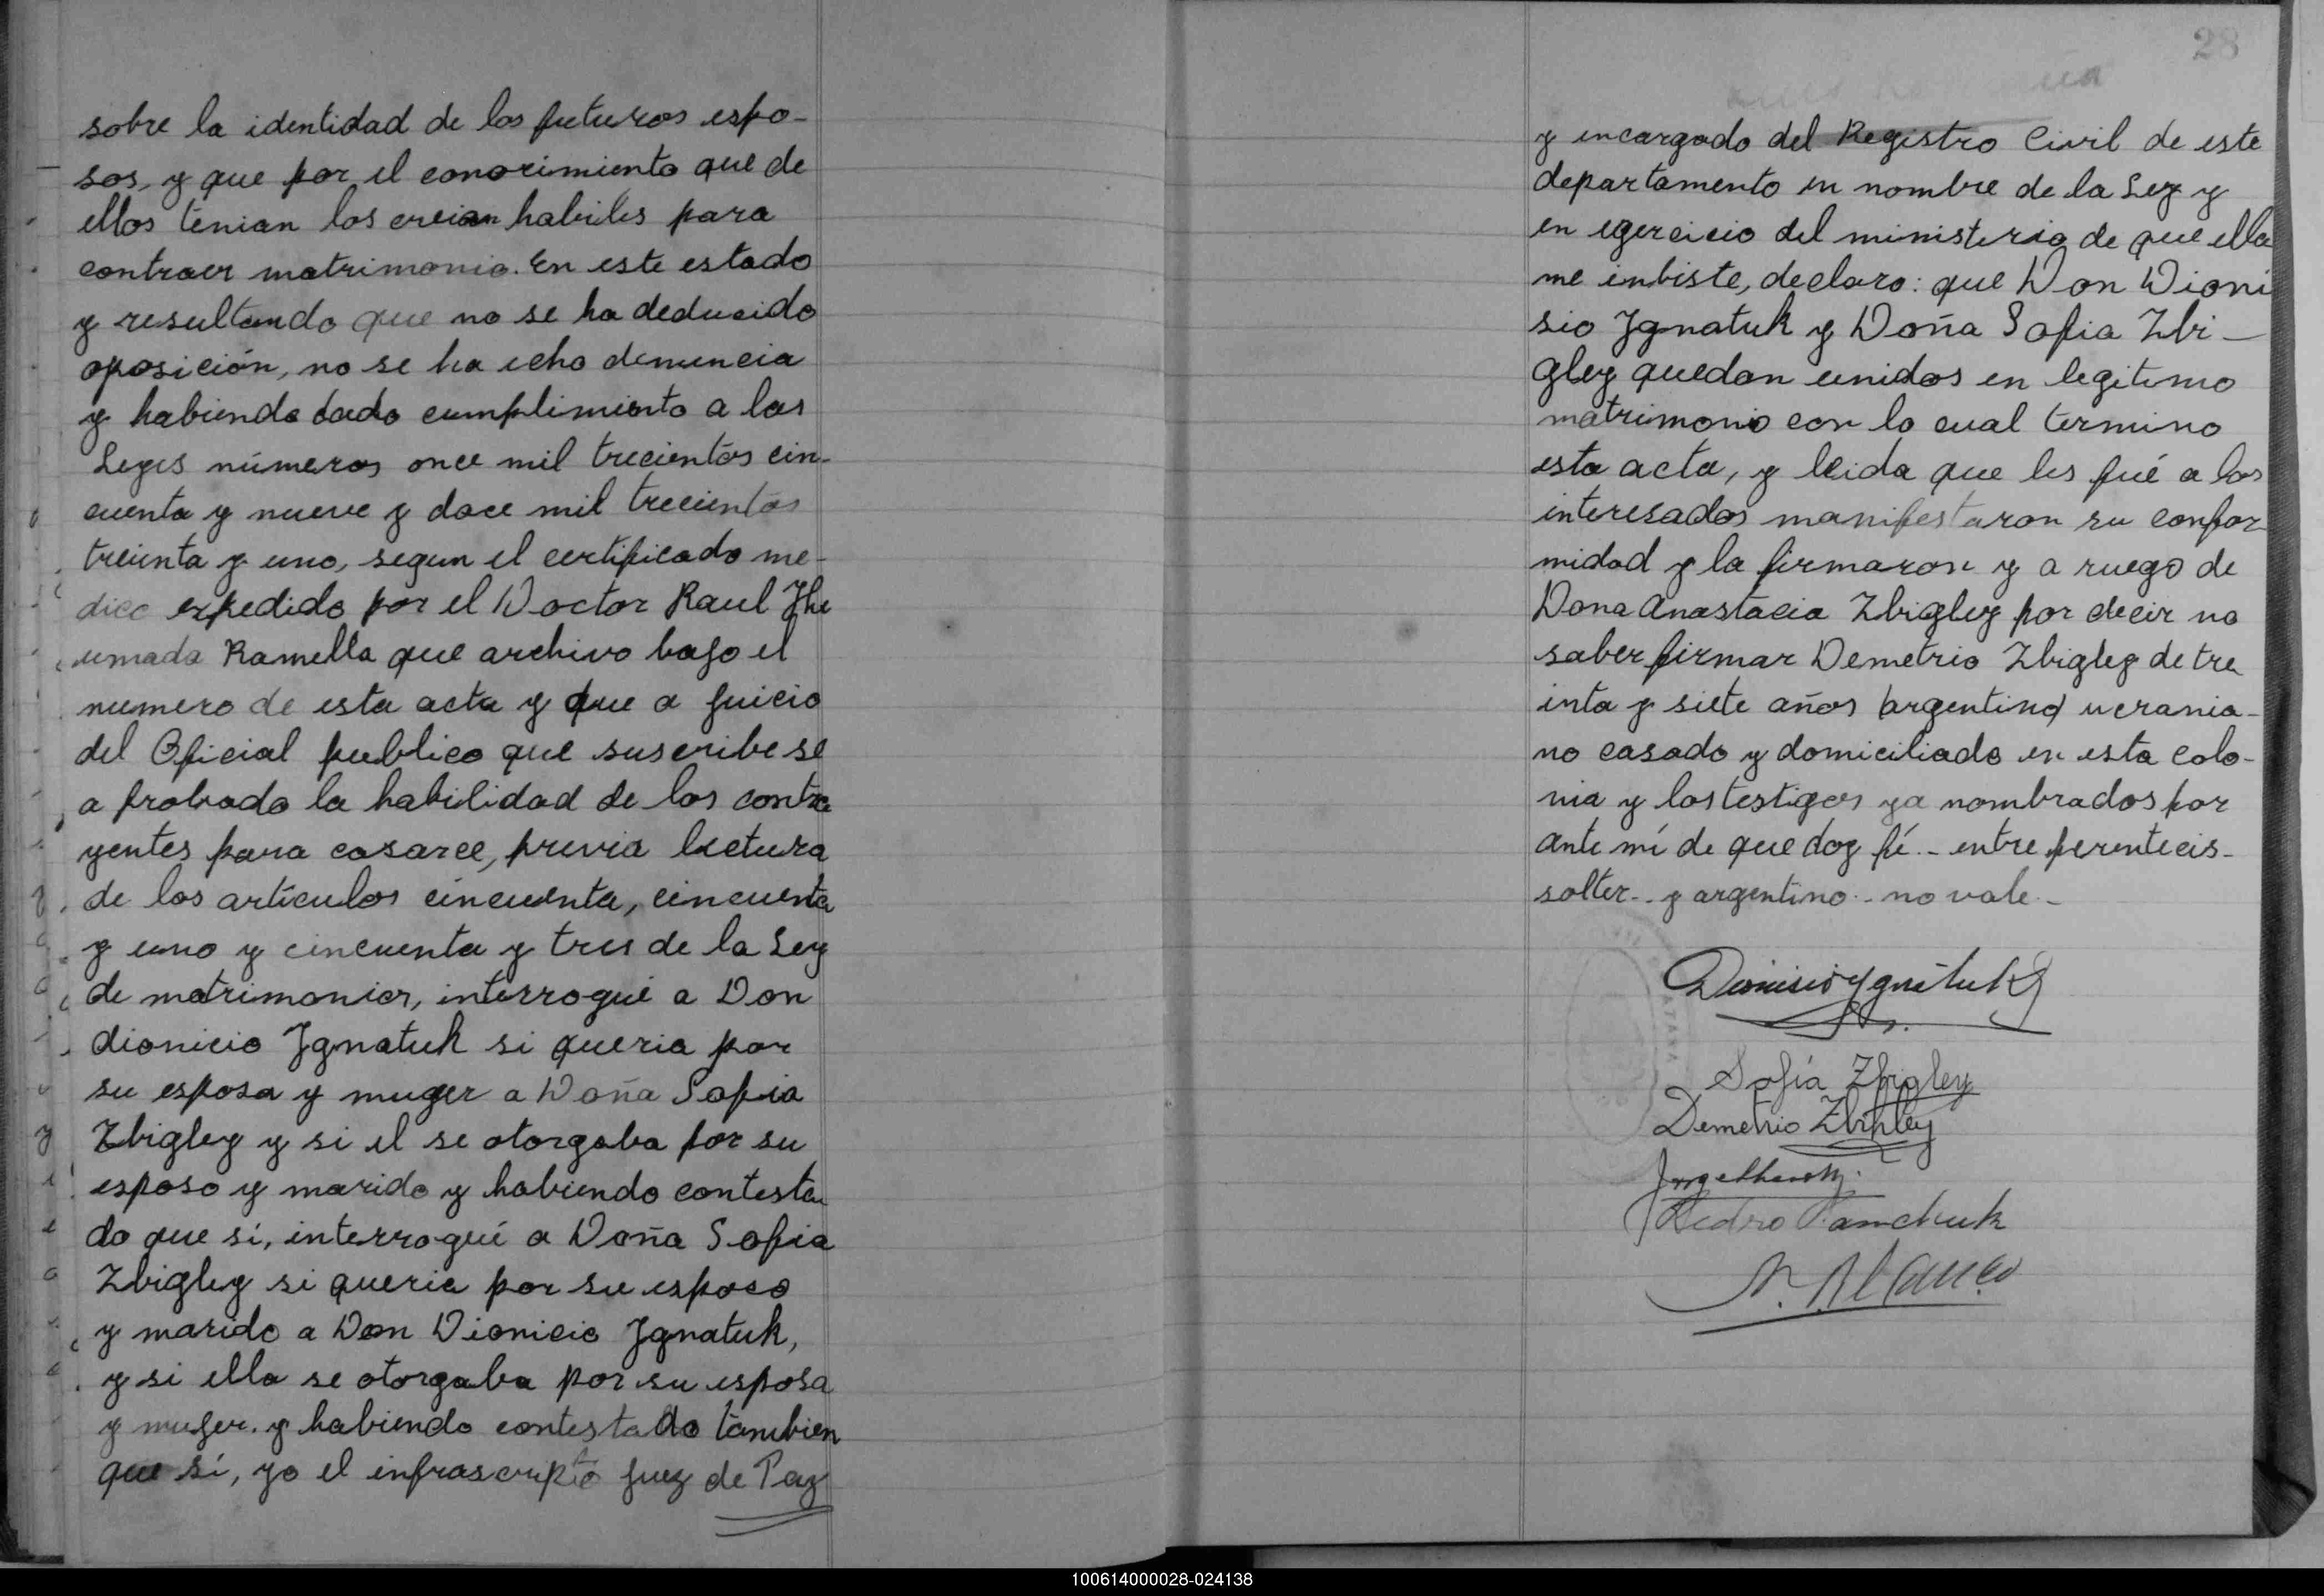 sobre la identidad de los futuros espo-
sos, y que por el conocimiento que de
ellos tenian los creian habiles para
contraer matrimonio. En este estado
y resultando que no se ha deducido
oposición, no se ha echo denuncia
y habiendo dado cumplimiento a las
Leyes números once mil trecientos cin-
cuenta y nueve y doce mil trecientos
treinta y uno, segun el certificado me-
dico expedido por el Doctor Raul Jhe
umada Ramella que archivo bajo el
numero de esta acta y que a juicio
del Oficial publico que suscribe se
a probado la habilidad de los contra
yentes para casarce, previa lectura
de los artículos cincuenta, cincuenta
y uno y cincuenta y tres de la Ley
de matrimonios, interrogué a Don
dionicio Ignatuk si queria por
su esposa y muger a Doña Sofia
Zbigley y si el se otorgaba por su
esposo y marido y habiendo contesta
do que sí, interrogué a Doña Sofia
Zbigley si queria por su esposo
y marido a Don Dionicio Ignatuk,
y si ella se otorgaba por su esposa
y mujer. y habiendo contestado tambien
que sí, yo el infrascripto juez de Paz
28
y encargado del Registro Civil de este
departamento en nombre de la Ley y
en egercicio del ministerio de que ella
me inbiste, declaro: que Don Dioni
sio Ignatuk y Doña Sofia Zbi-
gley quedan unidos en legitimo
matrimonio con lo cual termino
esta acta, y leida que les fué a los
interesados manifestaron su confor
midad y la firmaron y a ruego de
Dona Anastacia Zbigley por decir no
saber firmar Demetrio Zbigley de tre
inta y siete años (argentino) ucrania-
no casado y domiciliado en esta colo-
nia y los testigos ya nombrados por
ante mí de que doy fé.- entre perentecis-
solter.. y argentino.. no vale.-
Dionisio Ygnatuk
Sofía Zbigley
Demetrio Zbihley
Pedro Panchuk
100614000028-024138